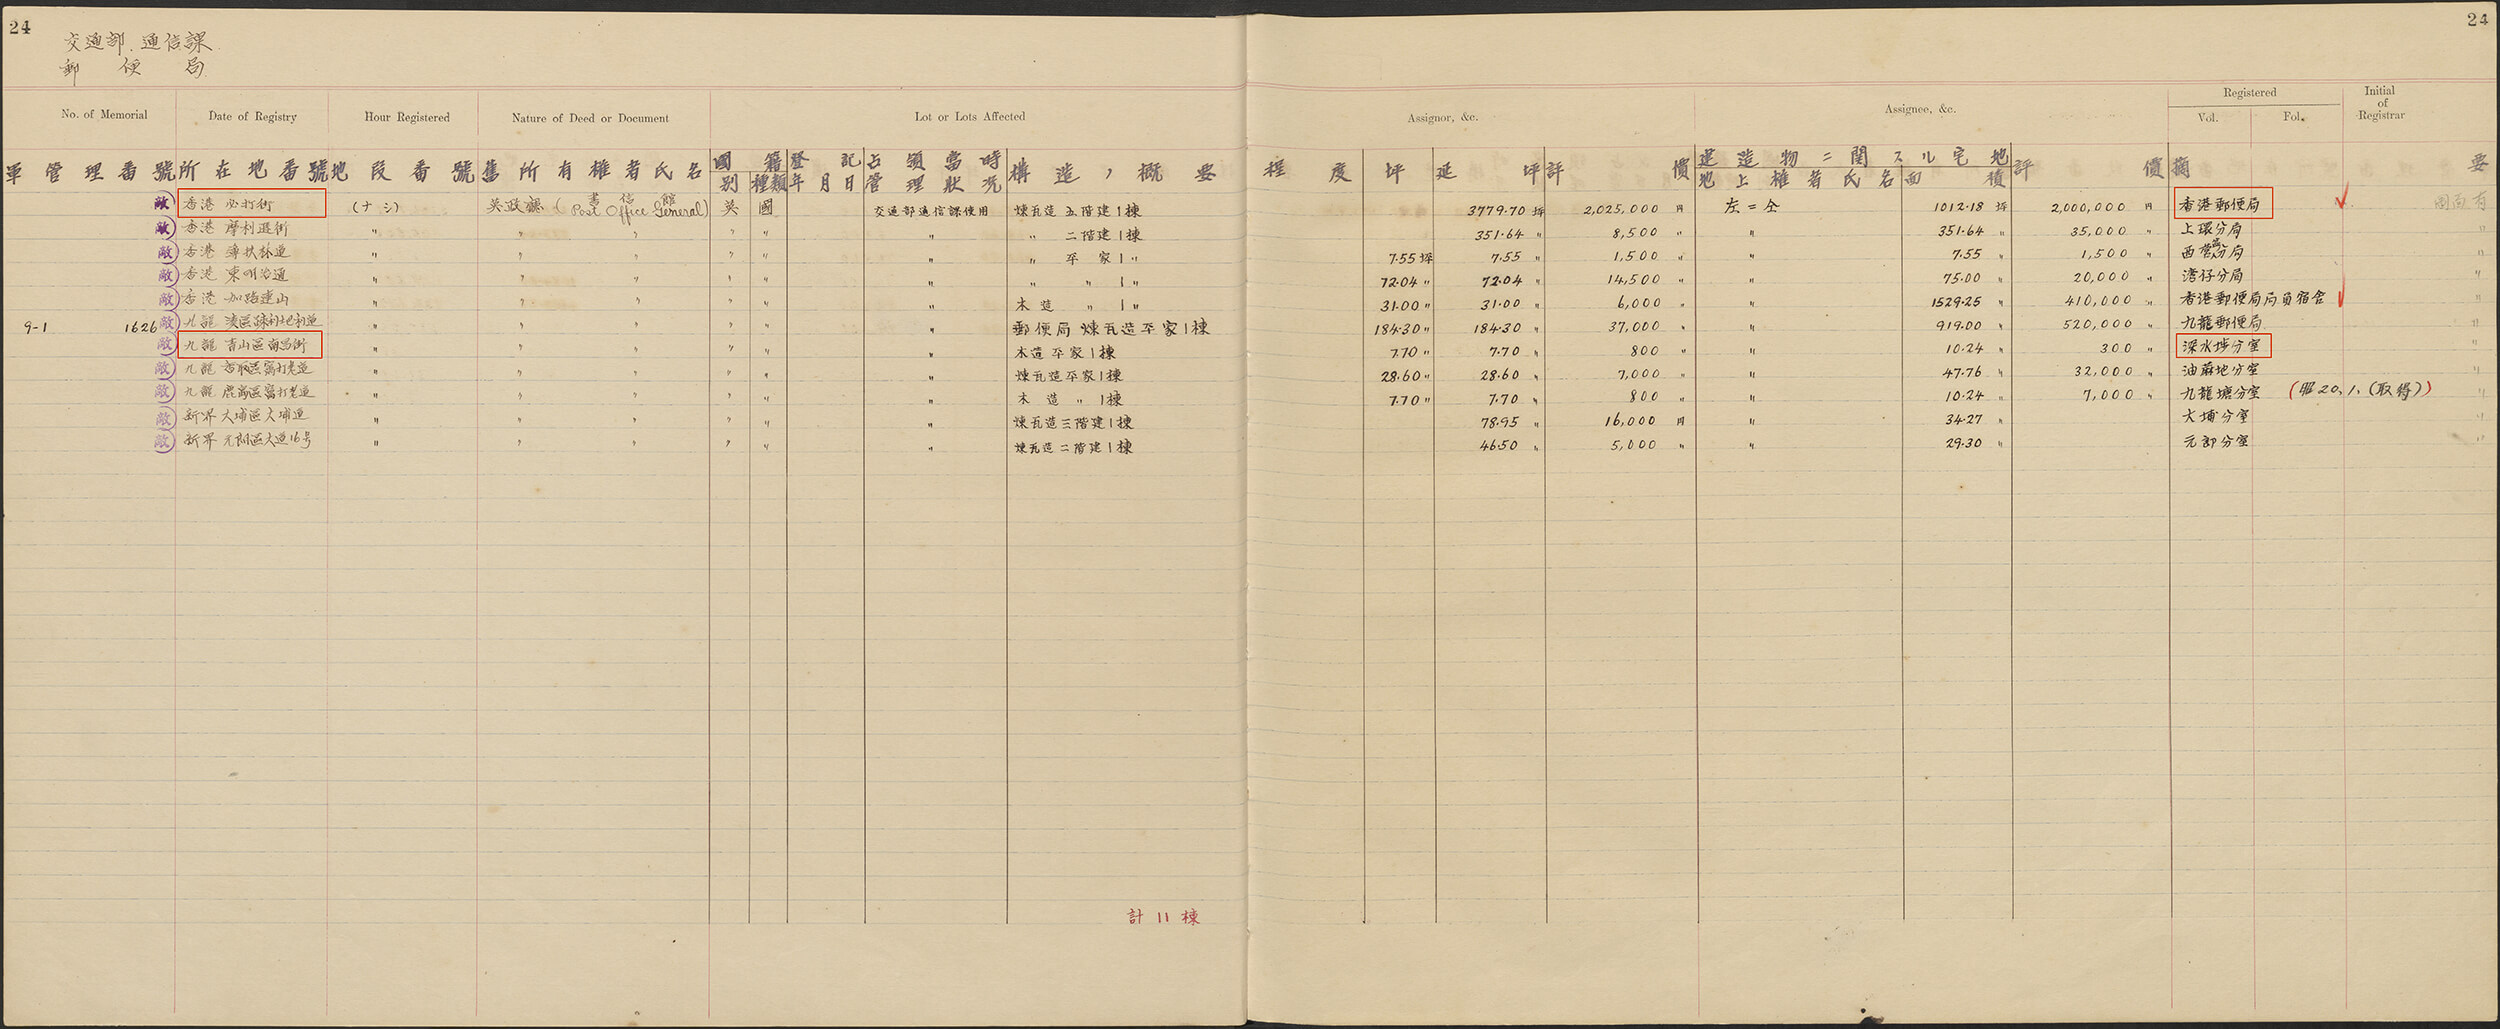 24
24
交通部 通信課
郵便局
No. of Memorial Date of Registry Hour Registered Nature of Deed or Document Lot or Lots Affected Assignor, &c. Assignee, &c. Registered Vol. Fol. Initial of Registrar
軍管理番號 所在地番號 地段番號 舊所有權者氏名 國別 籍種類 登記年月日 占領當時管理狀況 構造ノ概要 程度 坪 延坪 評價 建造物ニ関スル宅地 地上權者氏名 面積 評價 摘要
敵 香港 必打街 (ナシ) 英政廳 (書信館 Post Office General) 英 國 交通部通信課使用 煉瓦造 五階建1棟 3779.70坪 2,025,000円 左=仝 1012.18坪 2,000,000円 香港郵便局
敵 香港 摩利臣街 〃 〃 〃 〃 〃 〃 〃 二階建1棟 351.64〃 8,500〃 〃 351.64〃 35,000〃 上環分局 〃
敵 香港 薄扶林道 〃 〃 〃 〃 〃 〃 〃 平家1〃 7.55坪 7.55〃 1,500〃 〃 7.55〃 1,500〃 西營盤分局 〃
敵 香港 東明治通 〃 〃 〃 〃 〃 〃 〃 〃 1〃 72.04〃 72.04〃 14,500〃 〃 75.00〃 20,000〃 湾仔分局 〃
敵 香港 加路連山 〃 〃 〃 〃 〃 〃 木造 〃 1〃 31.00〃 31.00〃 6,000〃 〃 1529.25〃 410,000〃 香港郵便局局員宿舍 〃
9-1 1626 敵 九龍 湊區疎利士巴利道 〃 〃 〃 〃 〃 〃 郵便局 煉瓦造平家1棟 184.30〃 184.30〃 37,000〃 〃 919.00〃 520,000〃 九龍郵便局 〃
敵 九龍 青山區南昌街 〃 〃 〃 〃 〃 〃 木造平家1棟 7.70〃 7.70〃 800〃 〃 10.24〃 300〃 深水埗分室 〃
敵 九龍 香取區窩打老道 〃 〃 〃 〃 〃 〃 煉瓦造平家1棟 28.60〃 28.60〃 7,000〃 〃 47.76〃 32,000〃 油蔴地分室 〃
敵 九龍 鹿島區窩打老道 〃 〃 〃 〃 〃 〃 木造 〃 1棟 7.70〃 7.70〃 800〃 〃 10.24〃 7,000〃 九龍塘分室 (昭20.1.(取得)) 〃
敵 新界 大埔區大埔道 〃 〃 〃 〃 〃 〃 煉瓦造三階建1棟 78.95〃 16,000円 〃 34.27〃 大埔分室 〃
敵 新界 元朗區大道16号 〃 〃 〃 〃 〃 〃 煉瓦造二階建1棟 46.50〃 5,000〃 〃 29.30〃 元郎分室 〃
計11棟